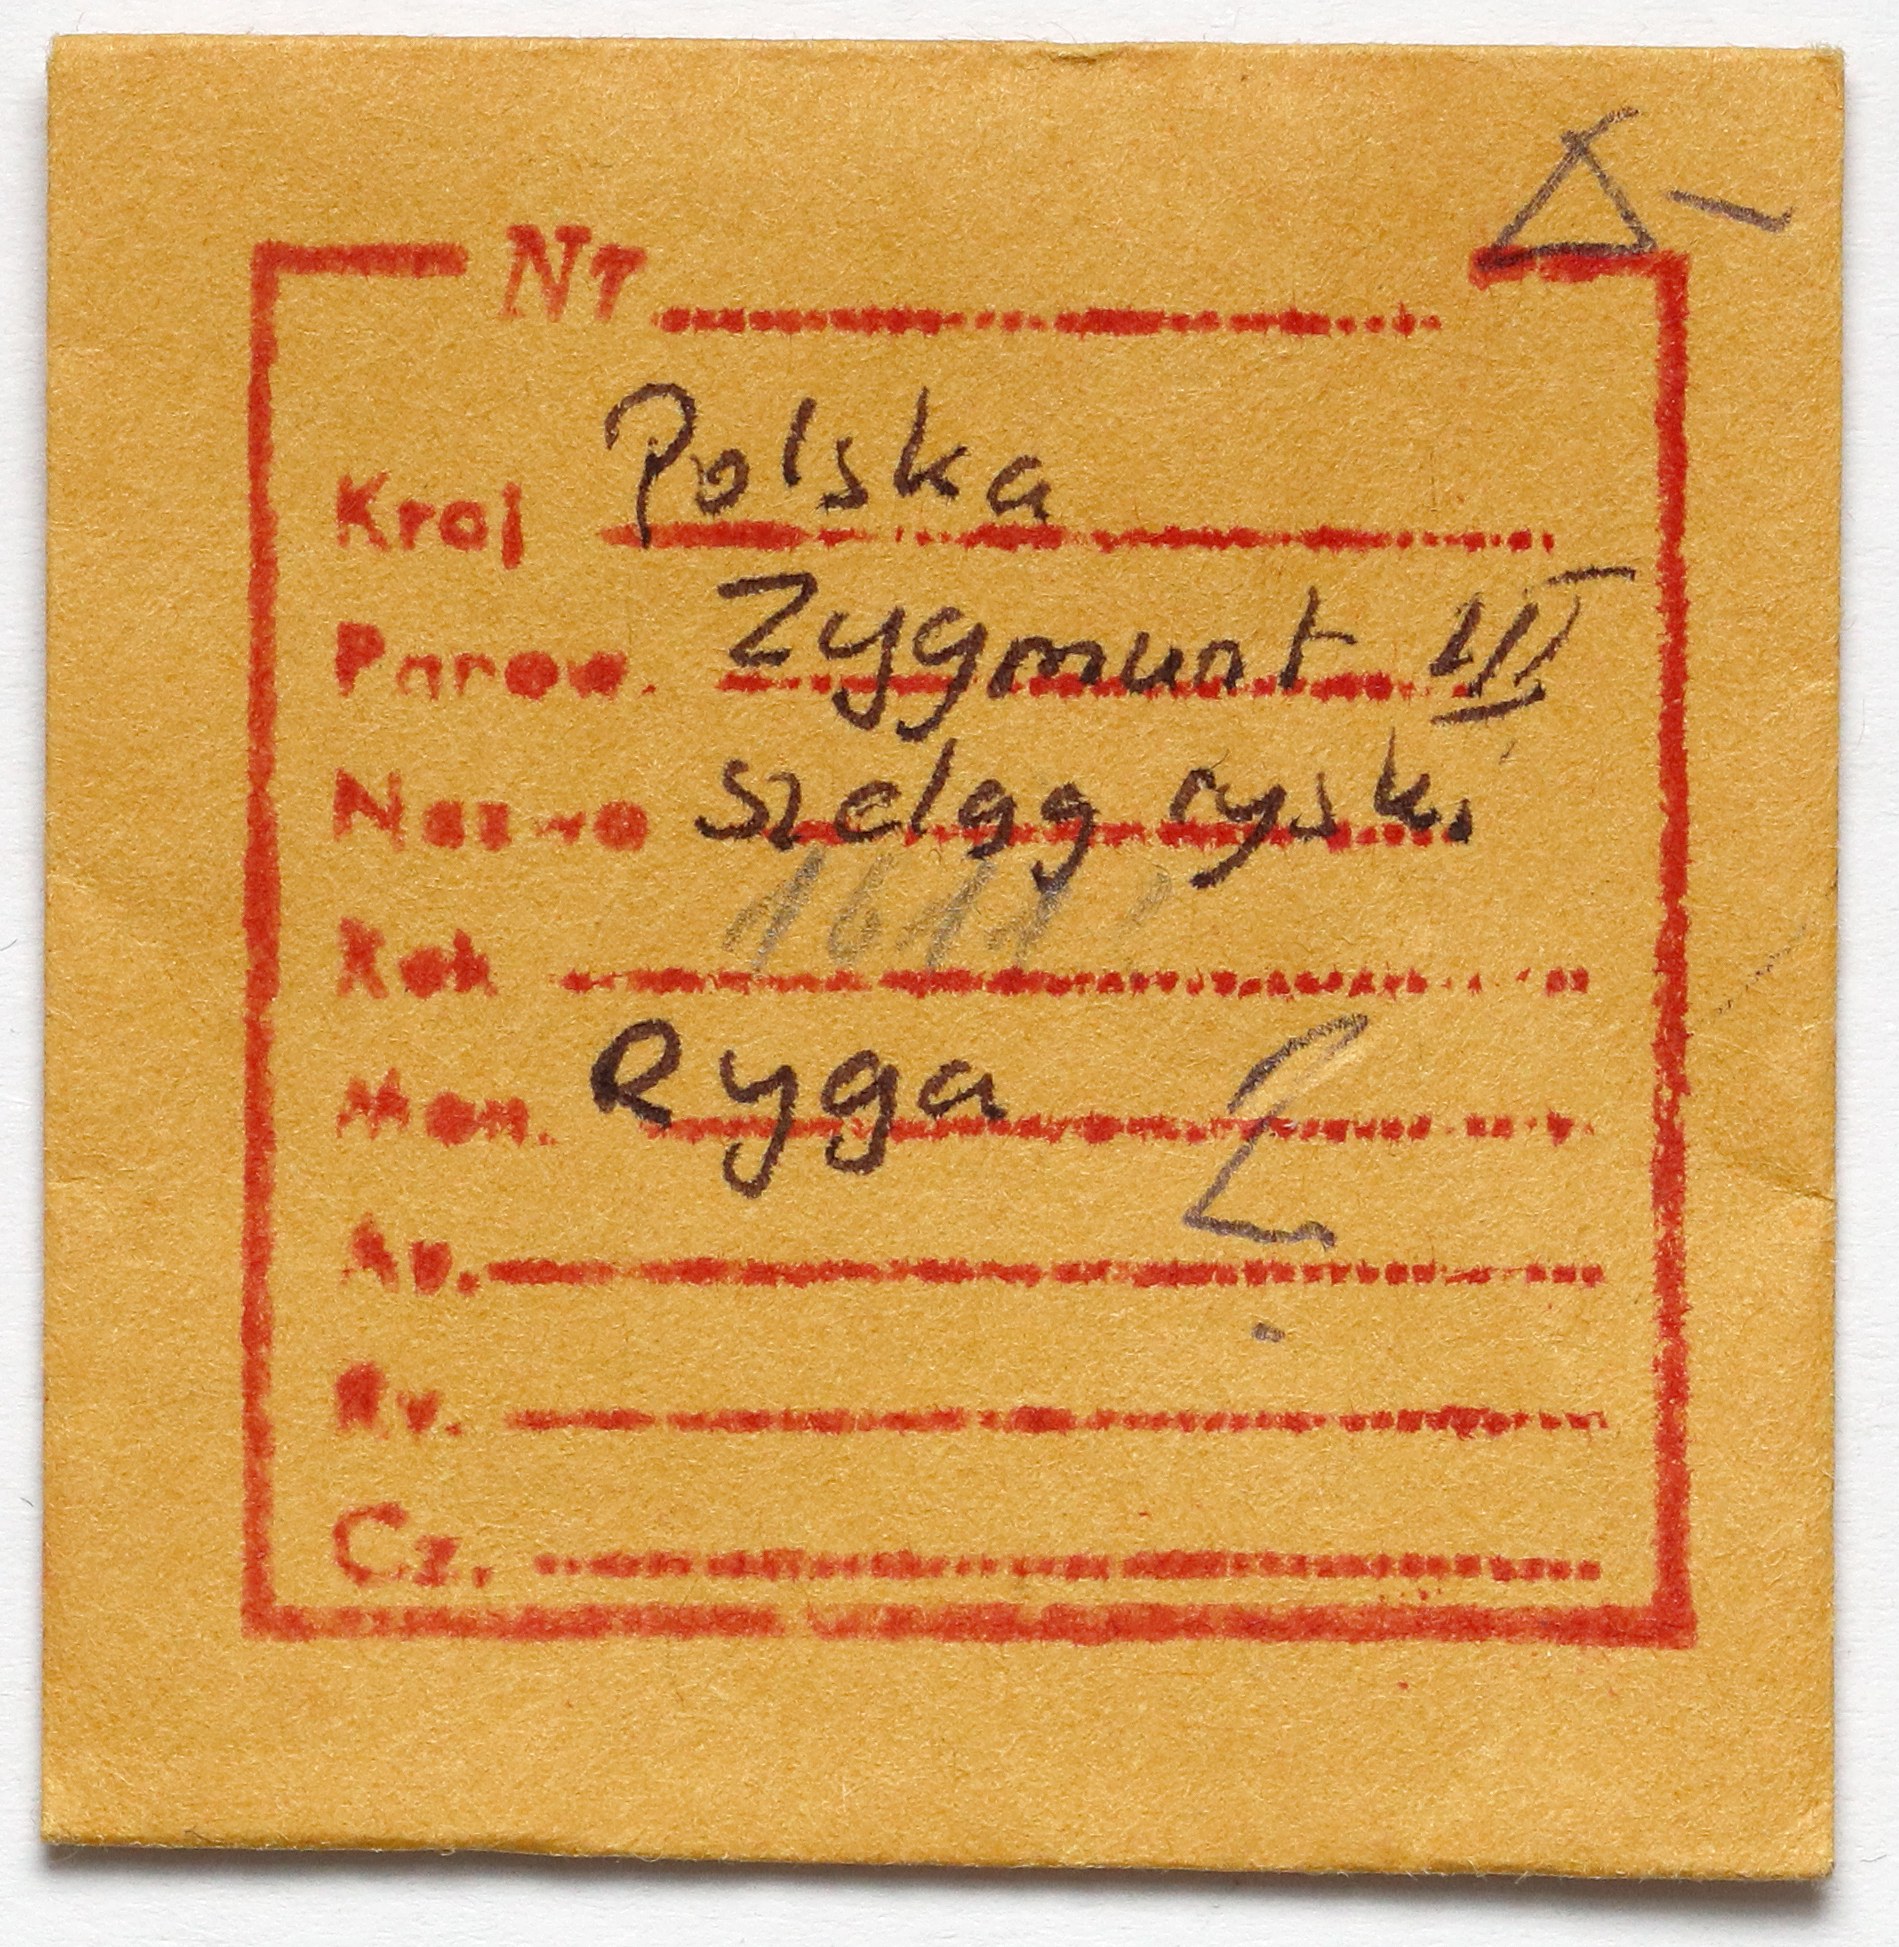 Nr
Kraj Polska
Panow. Zygmunt III
Nazwa szeląg ryski
Rok 1611
Men. Ryga
Av.
Rv.
Cz.